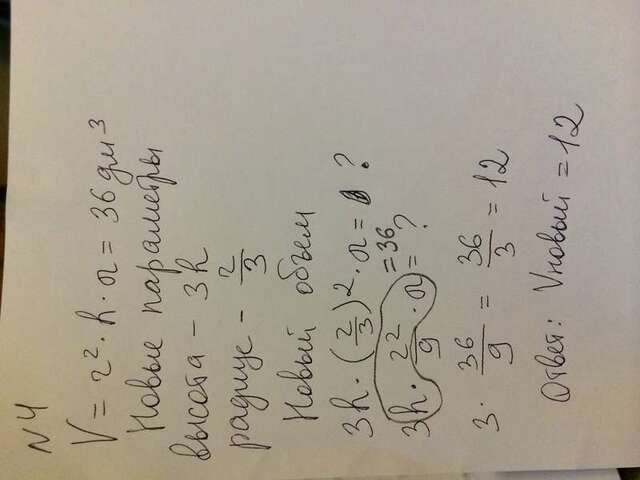 N4
V = r²·h·π = 36 дм³
Новые параметры
высота - 3h
радиус - r/3
Новый объем
3h·(r/3)²·π = ?
=36
3h·r²/9·π = ?
3·36/9 = 36/3 = 12
Ответ: Vновый = 12